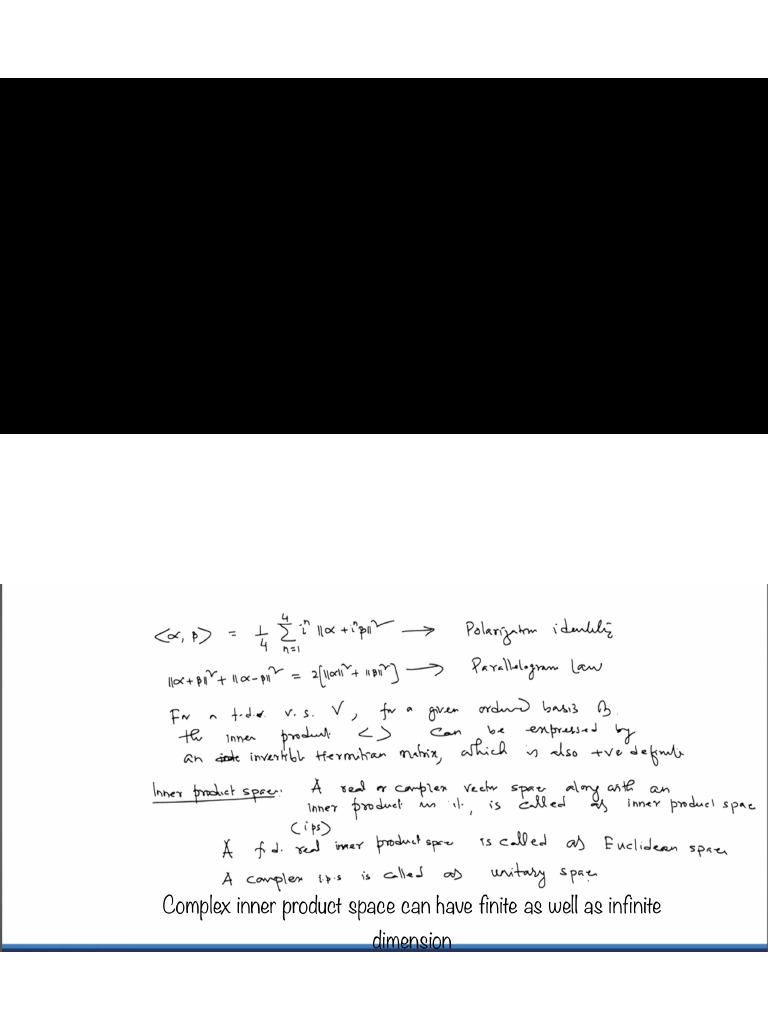 <α, β> = 1/4 ∑_{n=1}^{4} i^n ||α + i^n β||² → Polarization identity
||α+β||² + ||α-β||² = 2[||α||² + ||β||²] → Parallelogram Law
For a f.d. v.s. V, for a given ordered basis B.
the inner product < > can be expressed by
an invertible Hermitian matrix, which is also +ve definite
Inner product space: A real or complex vector space along with an
inner product on it, is called as inner product space
(ips)
A f.d. real inner product space is called as Euclidean space
A complex i.p.s is called as unitary space
Complex inner product space can have finite as well as infinite
dimension